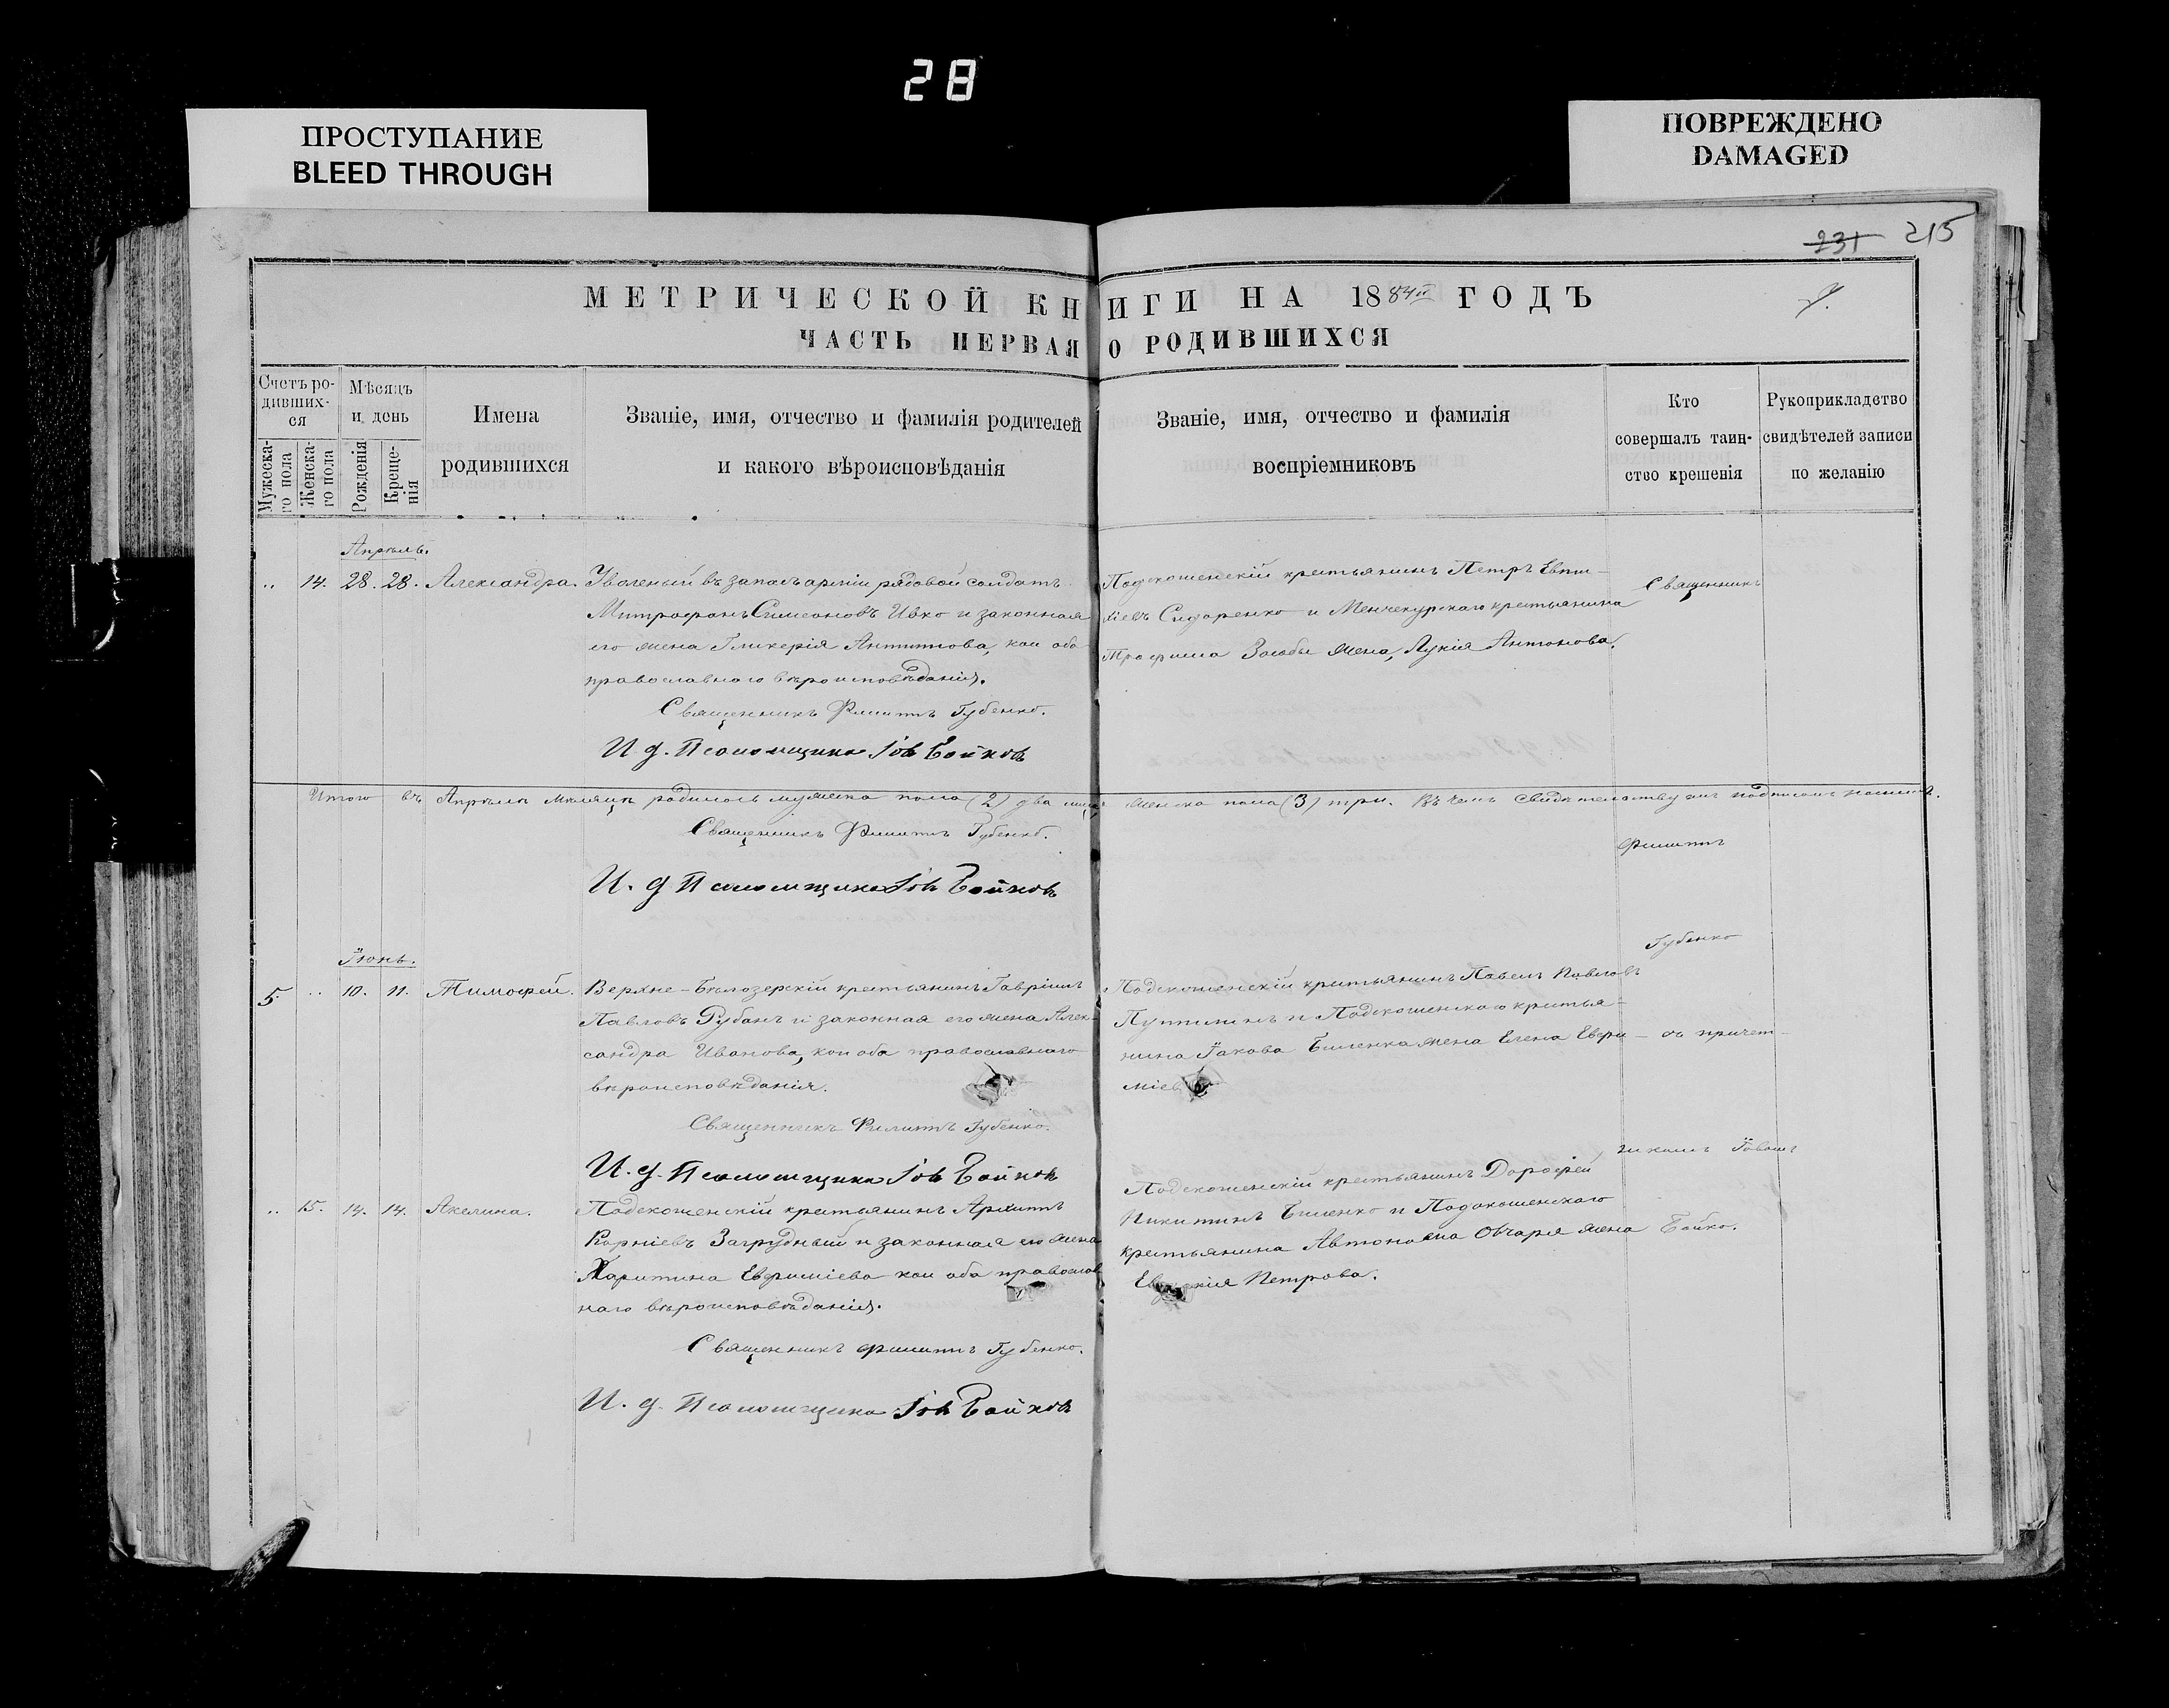 28
ПРОСТУПАНИЕ
BLEED THROUGH
ПОВРЕЖДЕНО
DAMAGED
231 215
МЕТРИЧЕСКОЙ КНИГИ НА 1884й ГОДЪ
ЧАСТЬ ПЕРВАЯ О РОДИВШИХСЯ
Счетъ ро-
дивших-
ся
Мужеска-
го пола
Женска-
го пола
Мѣсяцъ
и день
Рожденія
Креще-
нія
Имена
родившихся
Званіе, имя, отчество и фамилія родителей
и какого вѣроисповѣданія
Званіе, имя, отчество и фамилія
воспріемниковъ
Кто
совершалъ таин-
ство крещенія
Рукоприкладство
свидѣтелей записи
по желанію
Апрѣль.
.. 14. 28. 28. Александра.
Уволеный въ запасъ арміи рядовой солдатъ
Митрофанъ Симеоновъ Ивко и законная
его жена Гликерія Антипова, кои оба
православнаго вѣроисповѣданія.
Священникъ Филиппъ Губенко.
И. д. Псаломщика Іовъ Бойковъ
Подокошенскій крестьянинъ Петръ Евти-
хіевъ Сидоренко и Менчекурскаго крестьянина
Трофима жена, Лукія Антонова.
Итого въ Апрѣлѣ мѣсяцѣ родилось мужеска пола (2) два женска пола (3) три. Въ чемъ свидѣтельствуемъ подписомъ нашимъ.
Священникъ Филиппъ Губенко.
И. д. Псаломщика Іовъ Бойковъ
Іюнь.
5 .. 10. 11. Тимофей.
Верхне-Бѣлозерскій крестьянинъ Гавріилъ
Павловъ Рубанъ и законная его жена Алек-
сандра Иванова, кои оба православнаго
вѣроисповѣданія.
Священникъ Филиппъ Губенко.
И. д. Псаломщика Іовъ Бойковъ
Подокошенскій крестьянинъ Павелъ Павловъ
и Подокошенскаго крестья-
нина Іакова Биленка жена Елена Евфи-
міев
.. 15. 14. 14. Акелина.
Подокошенскій крестьянинъ Архиппъ
Корніевъ Загрудный и законная его жена
Харитина Евфиміева кои оба православ-
наго вѣроисповѣданія.
Священникъ Филиппъ Губенко.
И. д. Псаломщика Іовъ Бойковъ
Подокошенскій крестьянинъ Дорофей
Никитинъ Биленко и Подокошенскаго
крестьянина Автонома Овчаря жена
Петрова.
Священникъ
Филиппъ
Губенко
съ причет-
никомъ Іовомъ
Бойко.